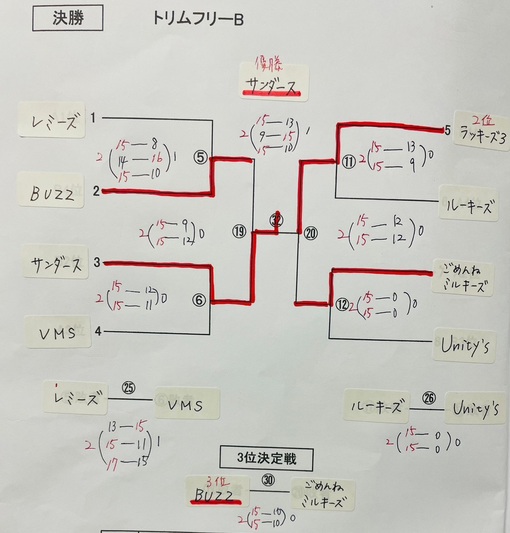 決勝
トリムフリーB
優勝
サンダース
レミーズ 1
BUZZ 2
⑤
2 (15—8
14—16
15—10) 1
サンダース 3
VMS 4
⑥
2 (15—12
15—11) 0
⑲
2 (15—9
15—12) 0
㉜
2 (15—13
9—15
15—10) 1
5 2位
ラッキーズ3
ルーキーズ
⑪
2 (15—13
15—9) 0
⑳
2 (15—12
15—12) 0
ごめんね
ミルキーズ
Unity's
⑫
2 (15—0
15—0) 0
レミーズ ㉕ VMS
2 (13—15
15—11
17—15) 1
ルーキーズ ㉖ Unity's
2 (15—0
15—0) 0
3位決定戦
3位
BUZZ ㉚ ごめんね
ミルキーズ
2 (15—10
15—10) 0